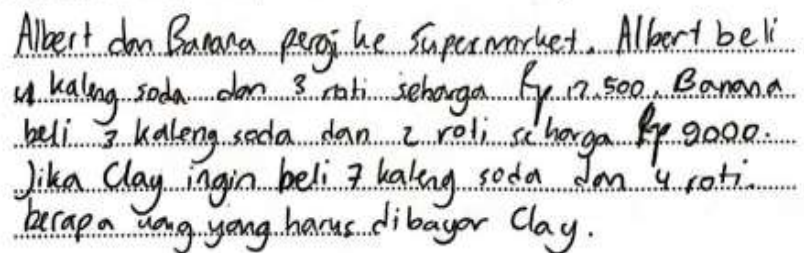 Albert dan Banana pergi ke supermarket. Albert beli
4 kaleng soda dan 3 roti seharga Rp 12.500. Banana
beli 3 kaleng soda dan 2 roti seharga Rp 9000.
Jika Clay ingin beli 7 kaleng soda dan 4 roti.
berapa uang yang harus dibayar Clay.